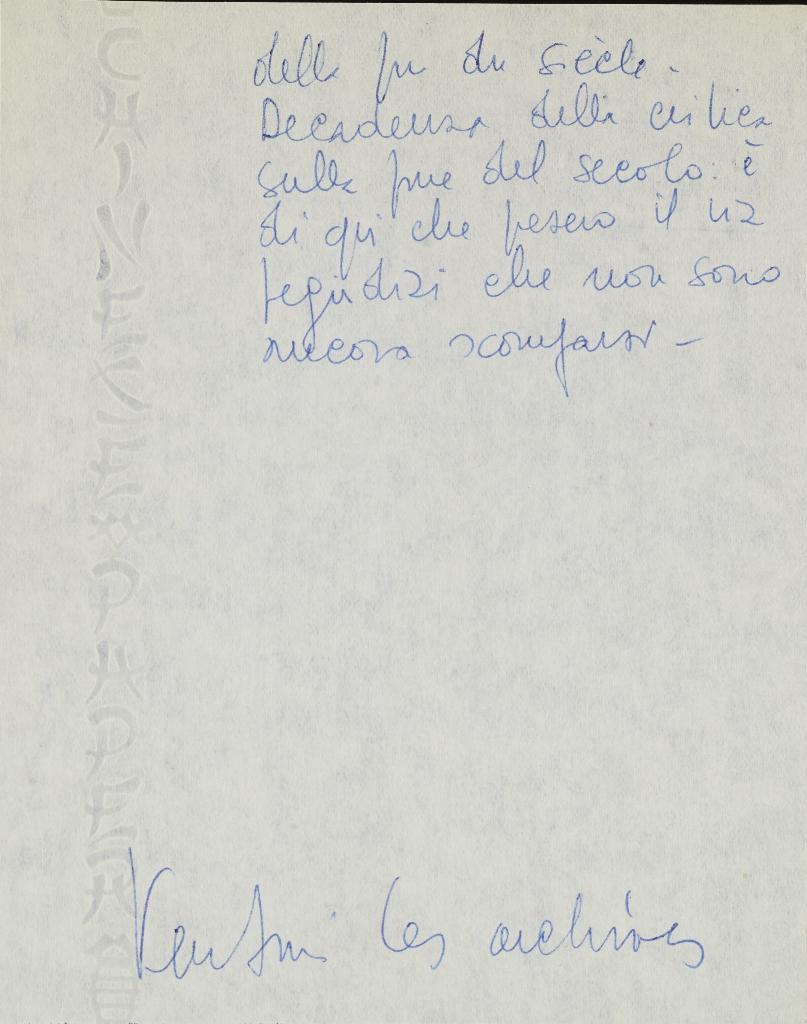 della fin du siècle.
Decadenza della critica
sulla fine del secolo: è
di qui che
pregiudizi che non sono
ancora scomparsi –
Venturi Les archives